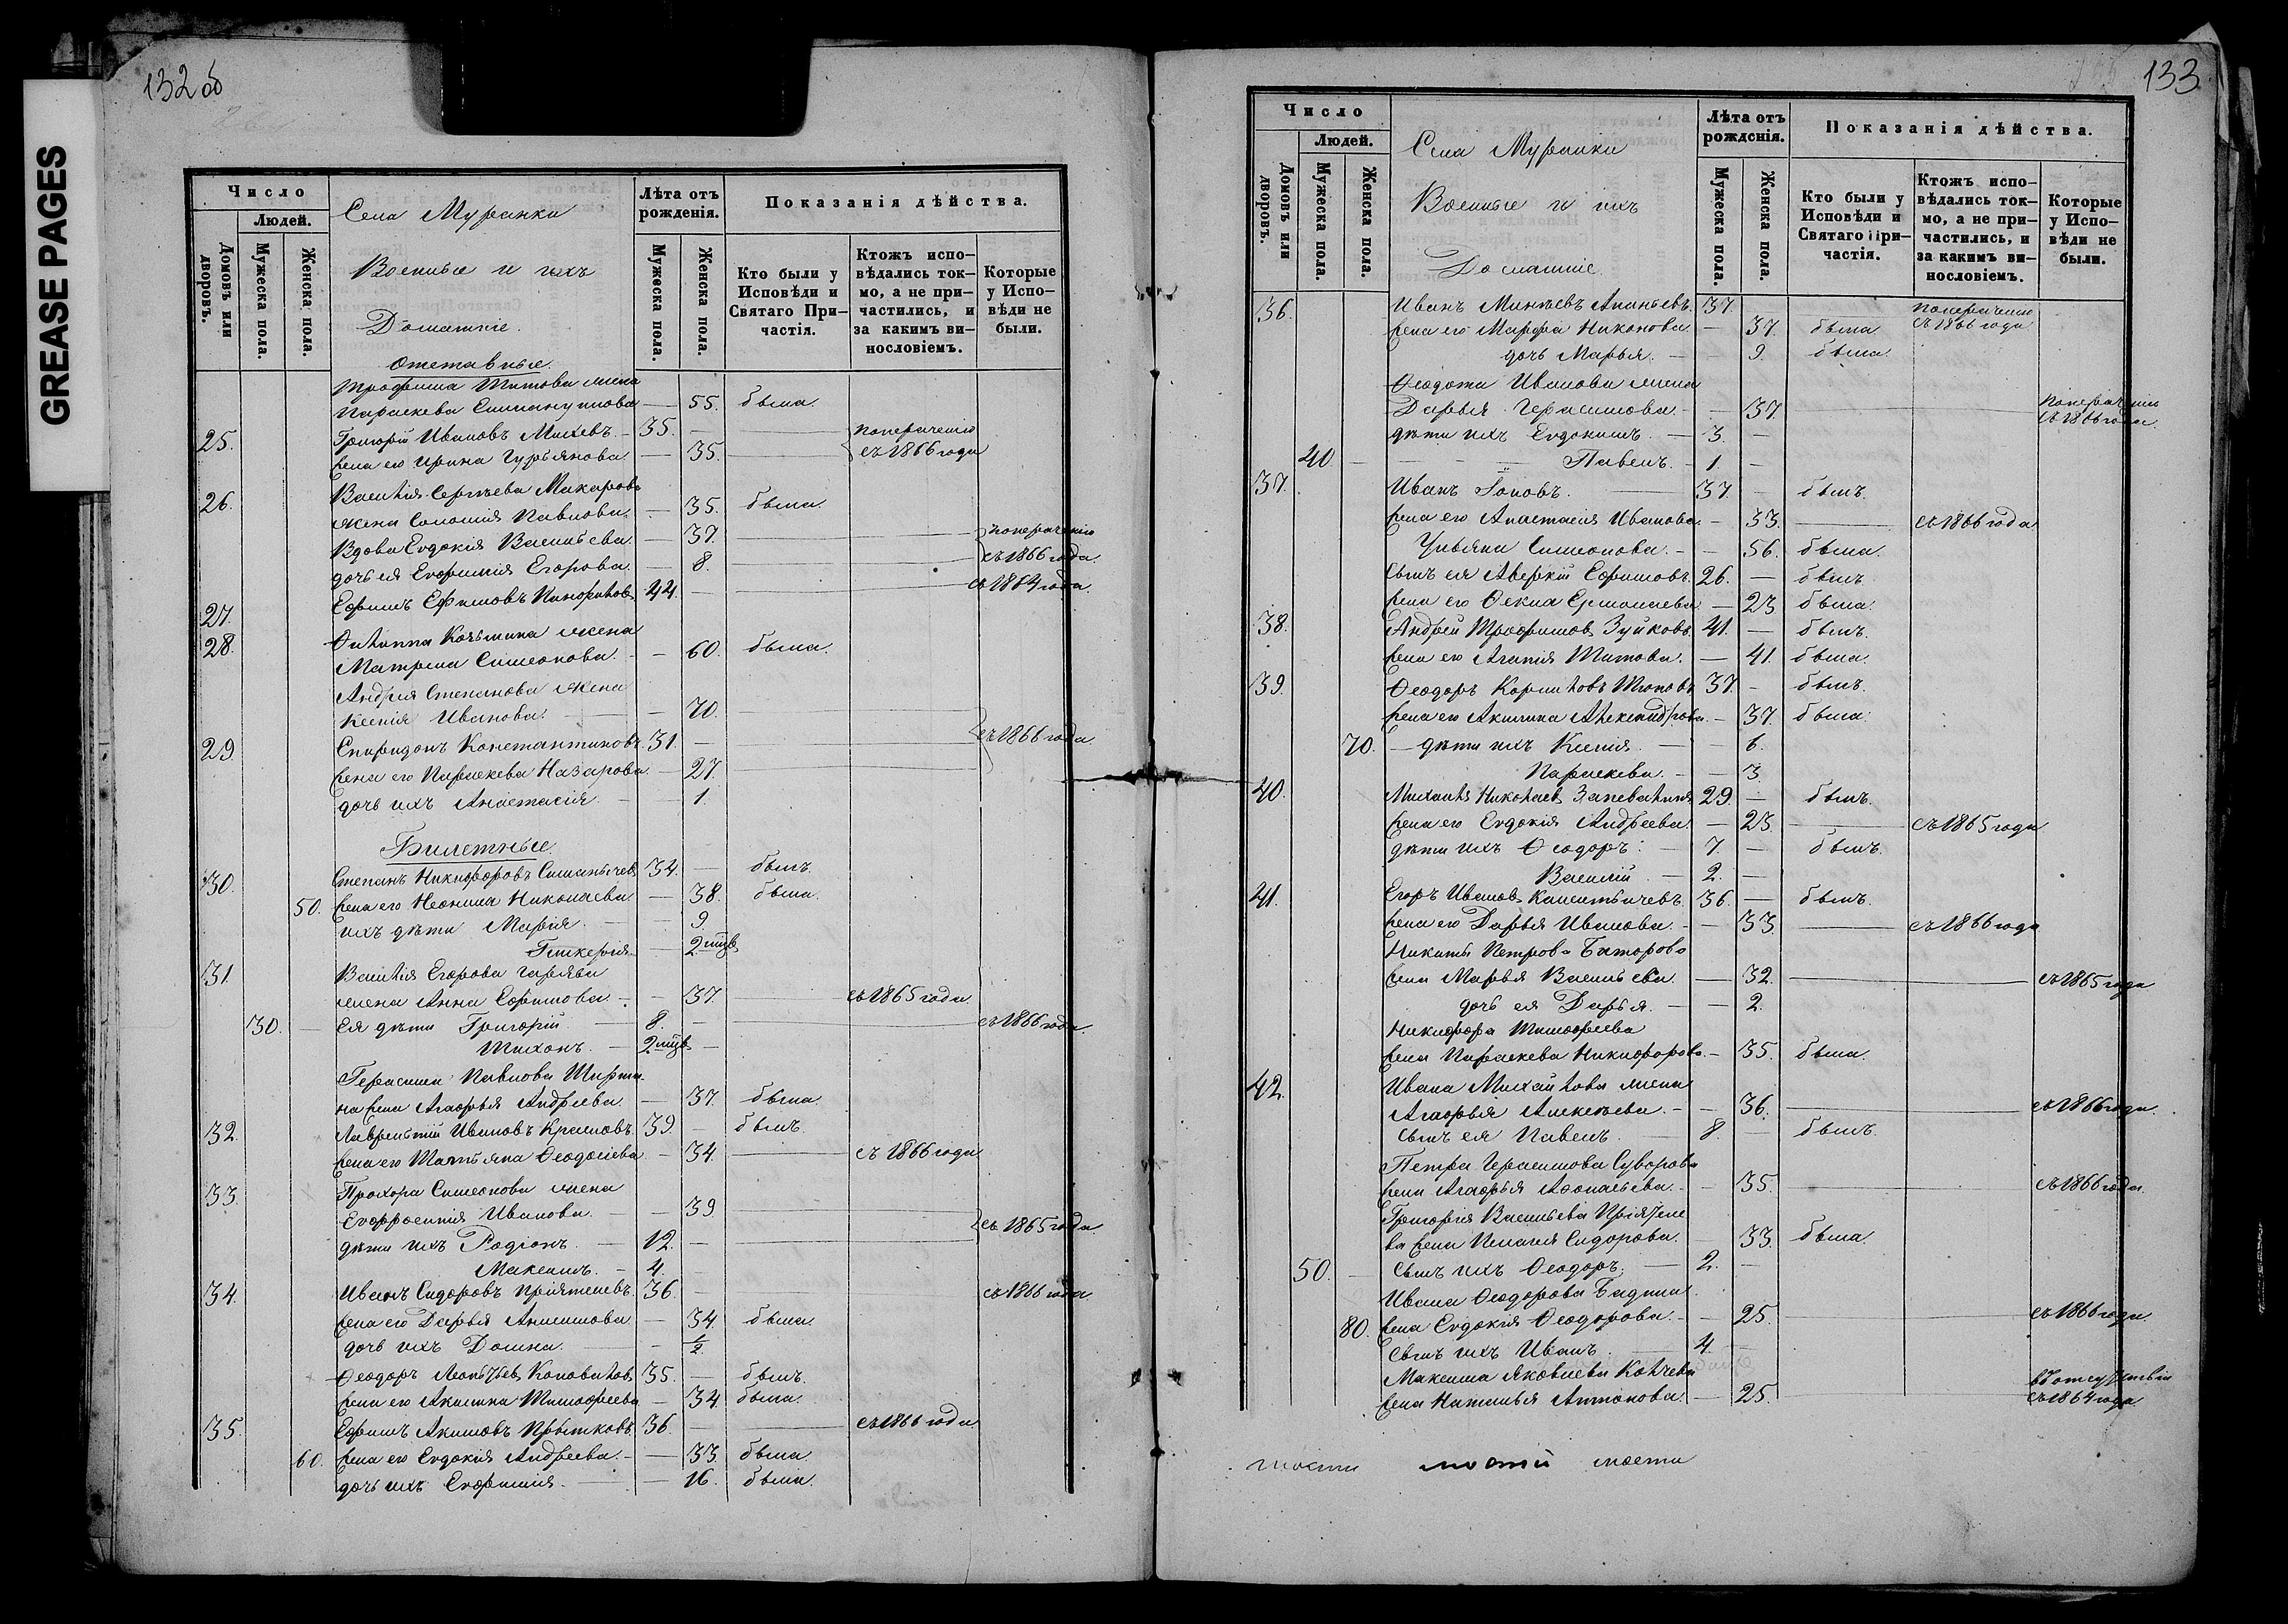 GREASE PAGES
132 об
Число
Людей.
Домовъ или дворовъ.
Мужеска пола.
Женска пола.
Села Муранки
Военные и ихъ
Домашніе.
Лѣта отъ рожденія.
Мужеска пола.
Женска пола.
Показанія дѣйства.
Кто были у Исповѣди и Святаго При-частія.
Ктожъ испо-вѣдались ток-мо, а не при-частились, и за какимъ ви-нословіемъ.
Которые у Испо-вѣди не были.
Отставные.
Трофима Титова жена
Параскева 55. была.
25. Григорій Ивановъ 35. — по нераченію
жена его Ирина Гурьянова — 35. съ 1866 года
26. Василія Сергѣева Макарова
жена Соломія Павлова. — 35. была.
Вдова Евдокія Васильева — 37. — по нераченію
дочь ея Евфимія Егорова. — 8. съ 1866 года.
27. Ефимъ Ефимовъ 44. — съ 1864 года.
28. Филиппа Козьмина жена
Матрена Симеонова. — 60. была.
Андрея Степанова жена
Ксенія Иванова. — 70.
29. Спиридонъ Константиновъ 31. — съ 1866 года
жена его Параскева Назарова — 27.
дочь ихъ Анастасія — 1.
Билетные.
30. Степанъ Никифоровъ 34. — былъ.
50. жена его Неонила Николаева — 38. была.
ихъ дѣти Марія — 9.
Гликерія — 2 мѣц
31. Василія Егорова
жена Анна Ефимова — 37. — съ 1865 года.
30. — Ея дѣти Григорій — 8. — съ 1866 года.
Тихонъ. — 2 мѣц —
Герасима Павлова
на жена Агафья Андреева — 37. была.
32. Лаврентій Ивановъ Красновъ. 39. — былъ.
жена его Татьяна Ѳеодосіева — 34. — съ 1866 года
33. Прохора Симеонова жена
Евфросинія Иванова. — 39
дѣти ихъ Родіонъ. — 12. — съ 1865 года
Максимъ. — 4.
34. Иванъ Сидоровъ Пріятелевъ. 36. — съ 1866 года
жена его Дарья Анисимова — 34. была.
дочь ихъ Домна. — 1/2
Ѳеодоръ Леонтьевъ Коноваловъ 35. — былъ.
жена его Акилина Тимофеева — 34. была.
35. Ефимъ Акимовъ Прытковъ. 36. — съ 1866 года
60. жена его Евдокія Андреева. — 33. была.
дочь ихъ Евфимія. — 16. была.
133
Число
Людей.
Домовъ или дворовъ.
Мужеска пола.
Женска пола.
Села Муранки
Военные и ихъ
Домашніе.
Лѣта отъ рожденія.
Мужеска пола.
Женска пола.
Показанія дѣйства.
Кто были у Исповѣди и Святаго При-частія.
Ктожъ испо-вѣдались ток-мо, а не при-частились, и за какимъ ви-нословіемъ.
Которые у Испо-вѣди не были.
36. Иванъ Ананьевъ. 37. по нераченію
жена его Марфа Никонова — 37. была съ 1866 года
дочь Марья. — 9. была.
Ѳеодота Иванова жена
Дарья Герасимова. — 37. по нераченію съ 1866 года.
дѣти ихъ Евдокимъ. — 3. —
40. — Павелъ. — 1. —
37. Иванъ 37. — былъ.
жена его Анастасія Иванова — 33. — съ 1866 года
Ульяна Симеонова. — 56. была.
сынъ ея Аверкій Ефимовъ. 26. — былъ
жена его Ѳекла Ермолаева — 23 была.
38. Андрей Трофимовъ Зуйковъ. 41. — былъ.
жена его Агапія Титова. — 41. была.
39. Ѳеодоръ Корниловъ 37. — былъ.
жена его Акилина Александрова. — 37. была.
70. — дѣти ихъ Ксенія. — 6.
Параскева. — 3.
40. Михаилъ Николаевъ 29. — былъ.
жена его Евдокія Андреева. — 23. — съ 1865 года
дѣти ихъ Ѳеодоръ. — 7. — былъ.
Василій — 2. —
41. Егоръ Ивановъ 36. — былъ.
жена его Дарья Иванова. — 33. — съ 1866 года
Никиты Петрова
жена Марья Васильева — 32. — съ 1865 года
дочь ея Дарья. — 2.
Никифора Тимофеева
жена Параскева Никифорова. — 35. была.
42. Ивана Михайлова жена
Агафья Алексѣева. — 36. — съ 1866 года.
сынъ ея Павелъ. — 8. — былъ.
Петра Герасимова Суворова
жена Агафья Афонасьева. — 35. — съ 1866 года.
Григорія Васильева Пріятеле
ва жена Пелагія Сидорова. — 33. была.
50. — сынъ ихъ Ѳеодоръ. — 2. —
Ивана Ѳеодорова
80. жена Евдокія Ѳеодорова. — 25. — съ 1866 года.
сынъ ихъ Иванъ. — 4. —
Максима Яковлева
жена Наталья Антонова. — 25. — въ отсутствіи съ 1864 года